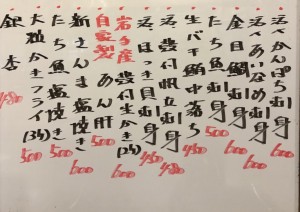 活〆かんぱち刺身 600
活〆あいなめ刺身 600
金目鯛刺身 600
たち魚刺身 500
生バチ鮪中落ち 600
活殻付帆立刺身 480
活ほっき貝刺身 450
岩手産殻付生かき(2ケ) 600
自家製 あん肝 500
新さんま塩焼き 600
たち魚塩焼き 500
大粒かきフライ(3ケ) 500
銀杏 480